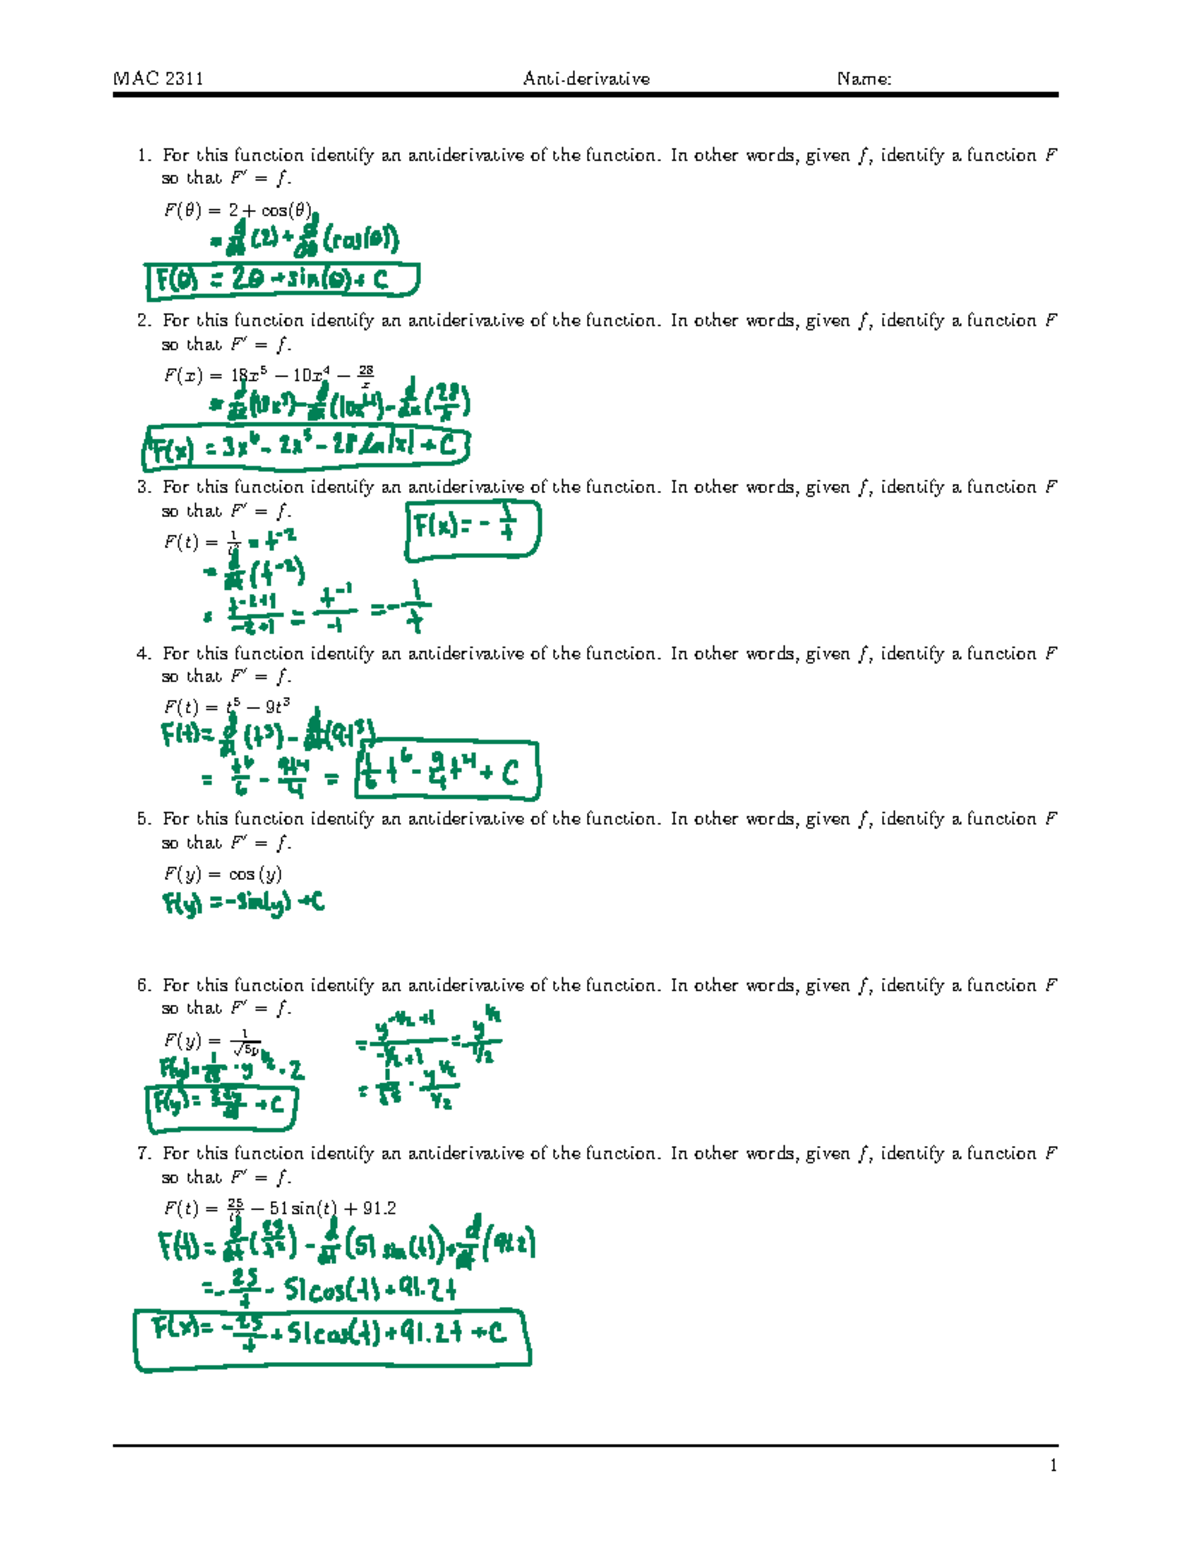 MAC 2311 Anti-derivative Name:
1. For this function identify an antiderivative of the function. In other words, given f, identify a function F
so that F′ = f.
F(θ) = 2 + cos(θ)
= d/dθ (2) + d/dθ (cos(θ))
F(θ) = 2θ + sin(θ) + C
2. For this function identify an antiderivative of the function. In other words, given f, identify a function F
so that F′ = f.
F(x) = 18x⁵ − 10x⁴ − 28/x
= d/dx (18x⁵) − d/dx (10x⁴) − d/dx (28/x)
F(x) = 3x⁶ − 2x⁵ − 28 ln|x| + C
3. For this function identify an antiderivative of the function. In other words, given f, identify a function F
so that F′ = f.
F(x) = − 1/t
F(t) = 1/t² = t⁻²
= d/dt (t⁻²)
= t⁻²⁺¹/−2+1 = t⁻¹/−1 = − 1/t
4. For this function identify an antiderivative of the function. In other words, given f, identify a function F
so that F′ = f.
F(t) = t⁵ − 9t³
F(t) = d/dt (t⁵) − d/dt (9t³)
= t⁶/6 − 9t⁴/4 = 1/6 t⁶ − 9/4 t⁴ + C
5. For this function identify an antiderivative of the function. In other words, given f, identify a function F
so that F′ = f.
F(y) = cos (y)
F(y) = −sin(y) + C
6. For this function identify an antiderivative of the function. In other words, given f, identify a function F
so that F′ = f.
= y^(−1/2 + 1)/−1/2 + 1 = y^(1/2)/1/2
F(y) = 1/√5y
F(y) = 1/√5 · y^(1/2) · 2
= 1/√5 · y^(1/2)/1/2
F(y) = + C
7. For this function identify an antiderivative of the function. In other words, given f, identify a function F
so that F′ = f.
F(t) = 25/t² − 51 sin(t) + 91.2
F(t) = d/dt ( ) − d/dt (51 sin(t)) + d/dt (91.2)
= − 25/t − 51cos(t) + 91.2t
F(x) = − 25/t + 51cos(t) + 91.2t + C
1